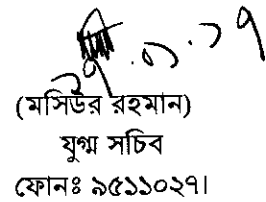 ২৭.১.১৭
(মসিউর রহমান)
যুগ্ম সচিব
ফোনঃ ৯৫১১০২৭।